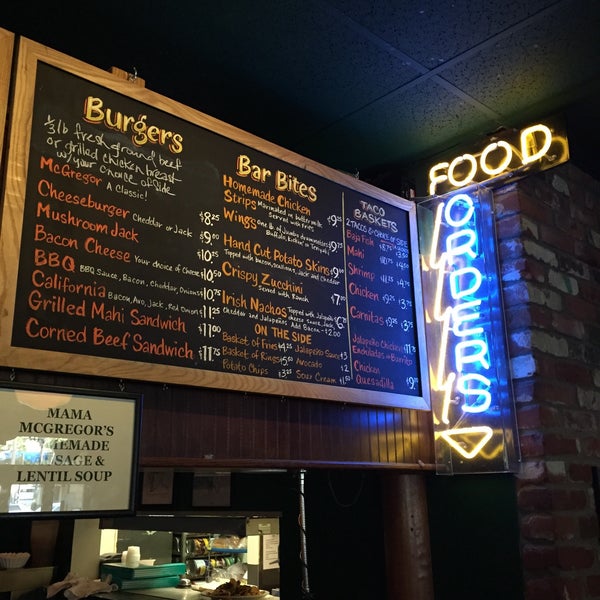 Burgers
1/3 lb fresh ground beef
or grilled chicken breast
w/your choice of side
McGregor A Classic! $8.25
Cheeseburger Cheddar or Jack $9.00
Mushroom Jack $9.50
Bacon Cheese Your choice of cheese $10.50
BBQ BBQ Sauce, Bacon, Cheddar, Onions $10.75
California Bacon, Avo, Jack, Red Onion $11.25
Grilled Mahi Sandwich $11.00
Corned Beef Sandwich $11.75
Bar Bites
Homemade Chicken
Strips Marinated in buttermilk
served with fries $9.25
Wings
Hand Cut Potato Skins $9.00
Topped with bacon, scallions, Jack and Cheddar
Crispy Zucchini
Served with Ranch $7.00
Irish Nachos Topped with Jalapeño
Cheddar and Jalapeños Add Bacon - $2.00
ON THE SIDE
Basket of Fries $4.25 Jalapeño Sauce
Basket of Rings $5.00 Avocado $2
Potato Chips $3.25 Sour Cream $1.50
TACO
BASKETS
2 TACOS & CHOICE OF SIDE
Baja Fish
Mahi
Shrimp
Chicken
Carnitas
Jalapeño Chicken
Enchiladas or Burrito
Chicken
Quesadilla
FOOD
ORDERS
MAMA
MCGREGOR'S
LENTIL SOUP